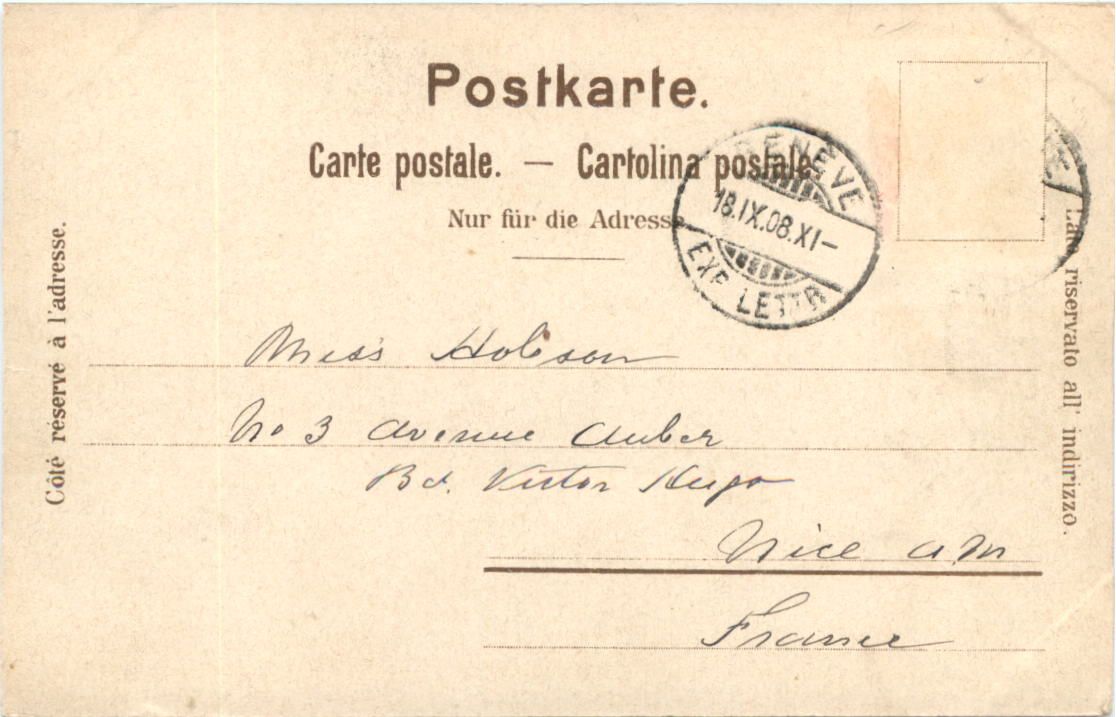 Postkarte.
Carte postale. — Cartolina postale.
Nur für die Adresse
GENÈVE
18.IX.08.XI–
EXP. LETTR
Côté réservé à l'adresse.
Lato riservato all' indirizzo.
Miss Hobson
No 3 Avenue Auber
Bd. Victor Hugo
Nice A M
France